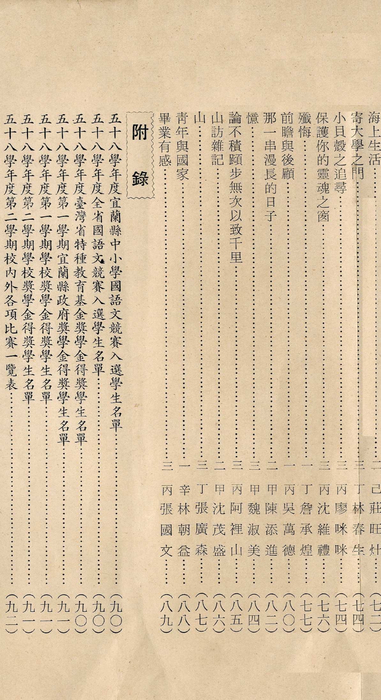 海上生活……二己莊旺州……(七二)
寄大學之門……三丁林春生……(七四)
小貝殼之追尋……三丙廖咪咪……(七四)
保護你的靈魂之窗……三丙沈維禮……(七六)
殲悔……二丁詹承煌……(七七)
前瞻與後顧……一丙吳萬德……(八〇)
那一串漫長的日子……二甲陳添進……(八二)
憶……三甲魏淑美……(八四)
論不積蹞步無次以致千里……三丙阿裡山……(八五)
山訪雜記……二甲沈茂盛……(八六)
山……三丁張廣森……(八七)
靑年與國家……一辛林朝益……(八八)
畢業有感……三丙張國文……(八九)
附錄
五十八學年度宜蘭縣中小學國語文競賽入選學生名單……(九〇)
五十八學年度全省國語文競賽入選學生名單……(九〇)
五十八學年度臺灣省特種敎育基金獎學金得獎學生名單……(九〇)
五十八學年度第一學期宜蘭縣政府獎學金得獎學生名單……(九一)
五十八學年度第一學期學校獎學金得獎學生名單……(九一)
五十八學年度第二學期學校獎學金得獎學生名單……(九一)
五十八學年度第二學期校內外各項比賽一覽表……(九二)